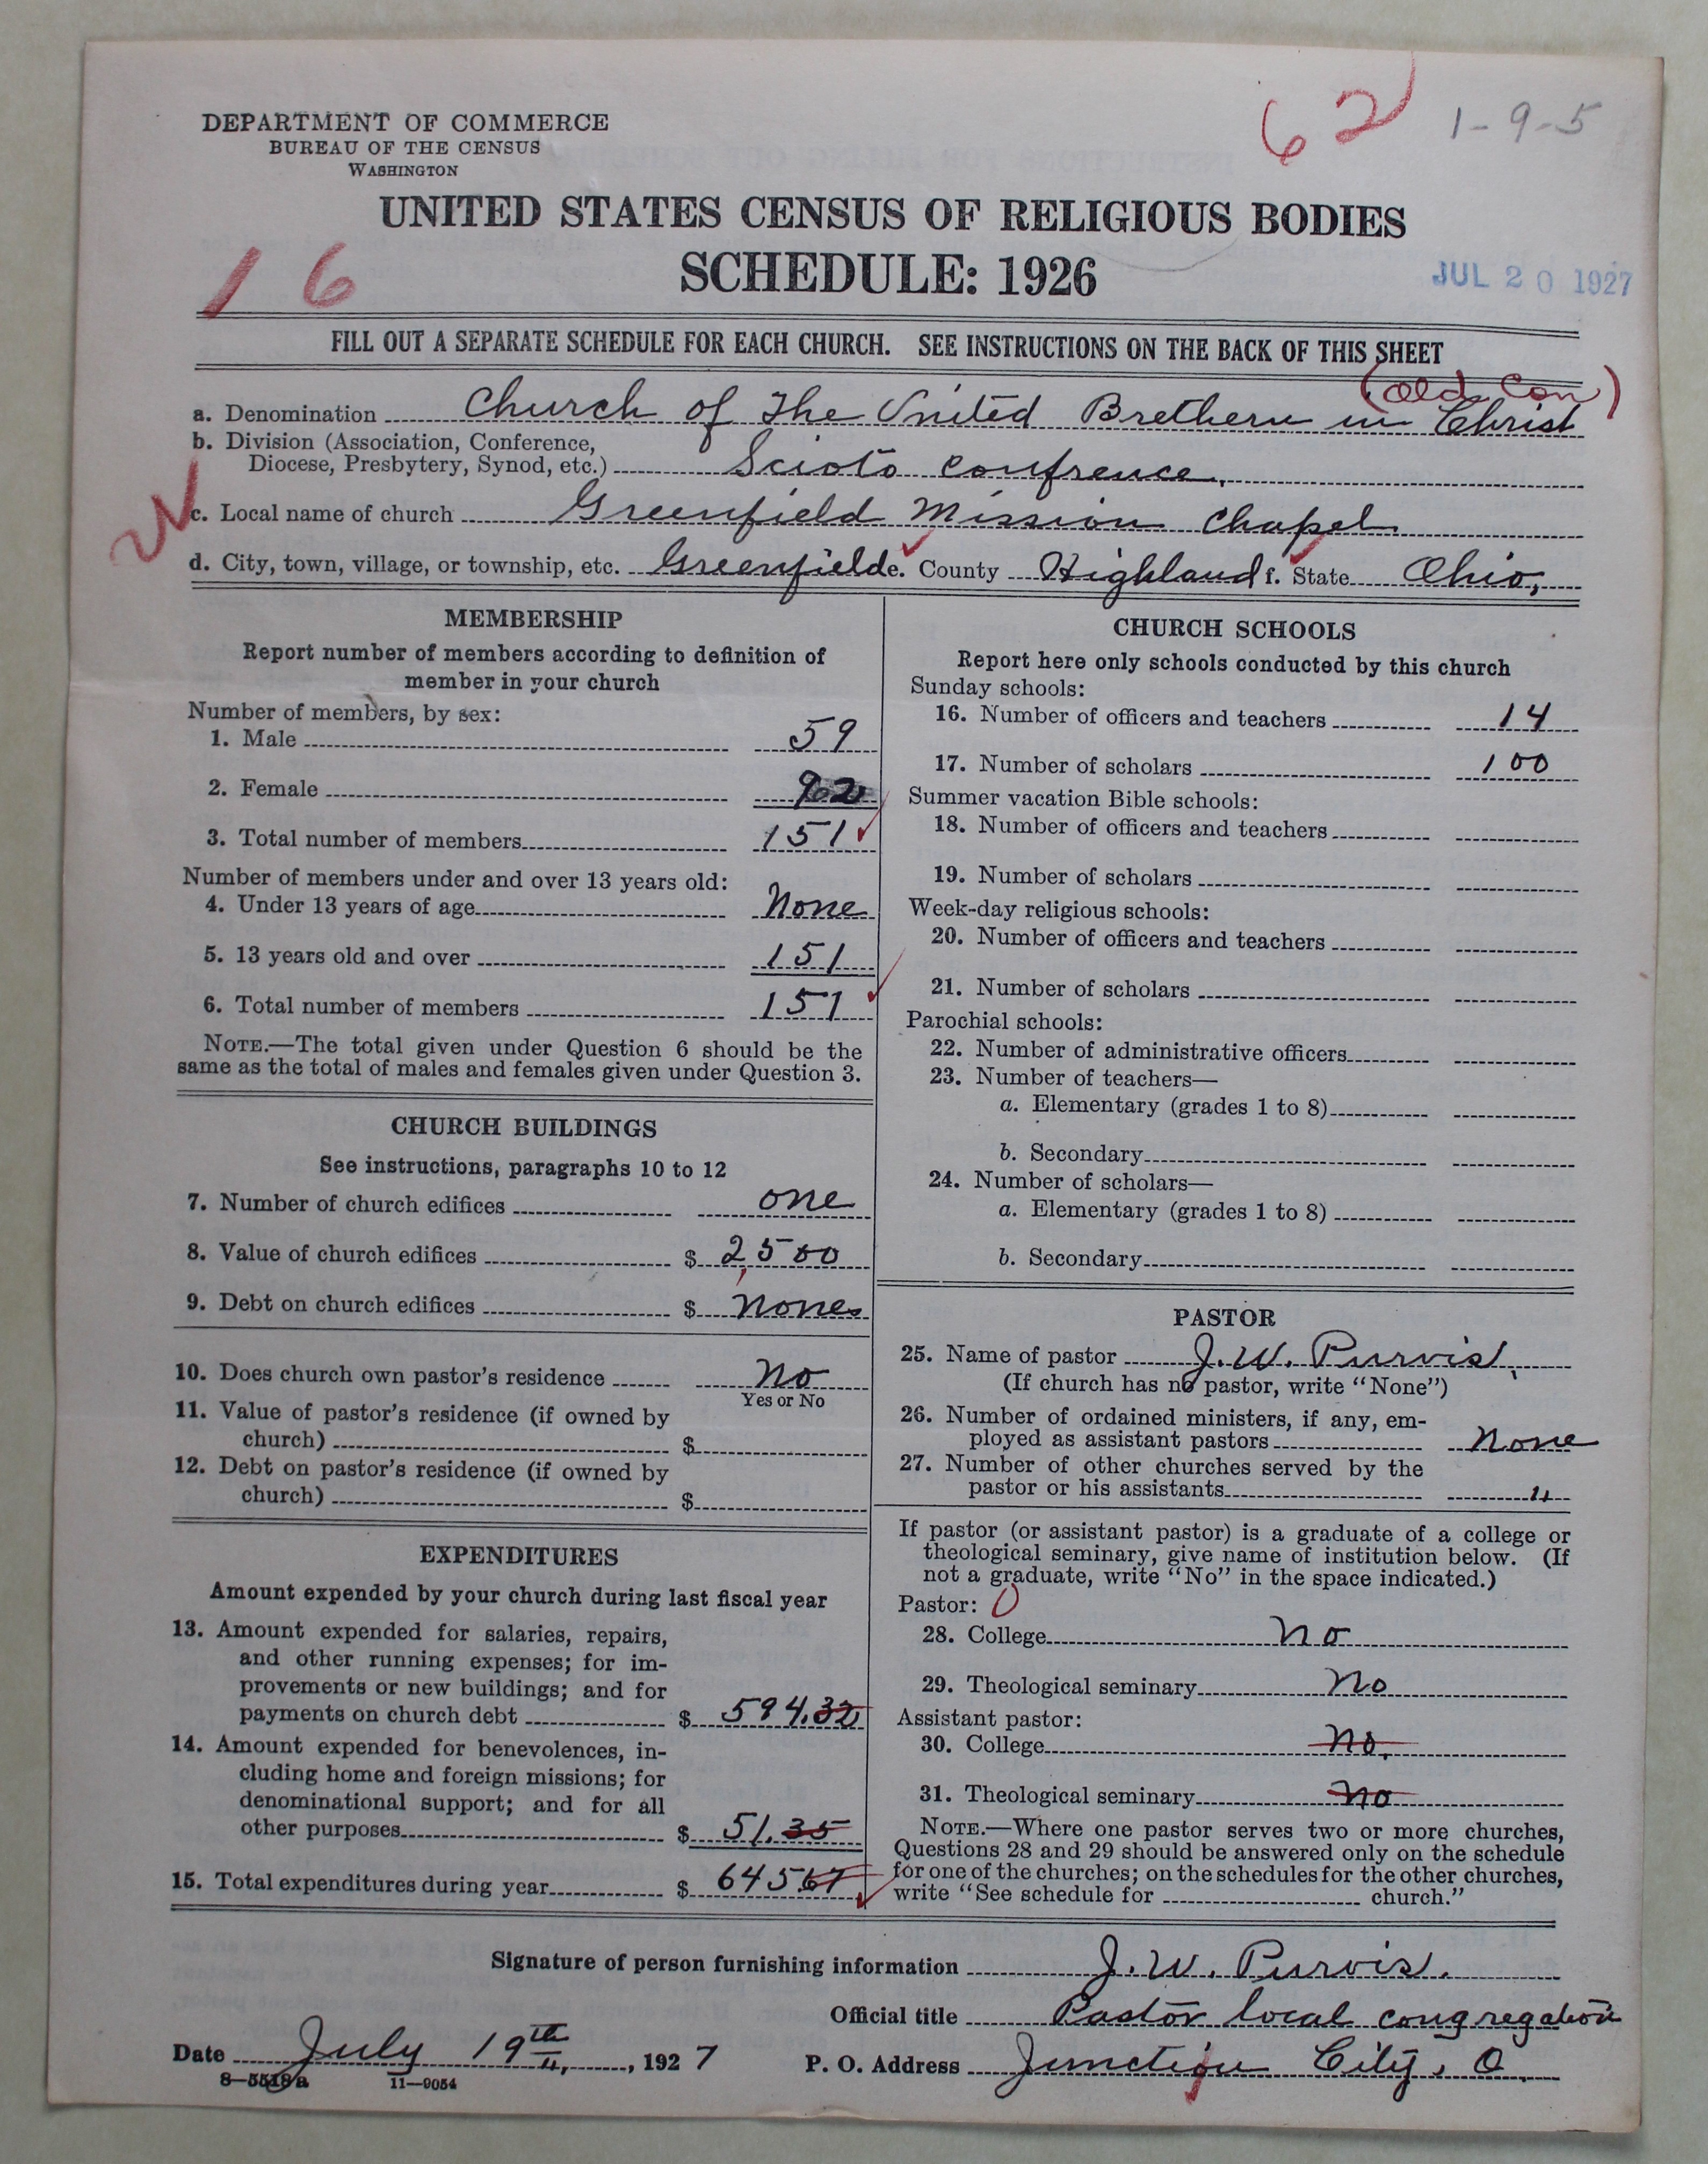 62 1-9-5
DEPARTMENT OF COMMERCE
BUREAU OF THE CENSUS
WASHINGTON
UNITED STATES CENSUS OF RELIGIOUS BODIES
SCHEDULE: 1926
16
JUL 20 1927
FILL OUT A SEPARATE SCHEDULE FOR EACH CHURCH. SEE INSTRUCTIONS ON THE BACK OF THIS SHEET
(Old Con)
a. Denomination Church of The United Brethern in Christ
b. Division (Association, Conference,
Diocese, Presbytery, Synod, etc.) Scioto Confrence,
c. Local name of church Greenfield Mission Chapel
d. City, town, village, or township, etc. Greenfield e. County Highland f. State Ohio,
MEMBERSHIP
Report number of members according to definition of
member in your church
Number of members, by sex:
1. Male 59
2. Female 92
3. Total number of members 151
Number of members under and over 13 years old:
4. Under 13 years of age None
5. 13 years old and over 151
6. Total number of members 151
NOTE.—The total given under Question 6 should be the
same as the total of males and females given under Question 3.
CHURCH BUILDINGS
See instructions, paragraphs 10 to 12
7. Number of church edifices one
8. Value of church edifices $ 2,500
9. Debt on church edifices $ none
10. Does church own pastor's residence No
Yes or No
11. Value of pastor's residence (if owned by
church) $
12. Debt on pastor's residence (if owned by
church) $
EXPENDITURES
Amount expended by your church during last fiscal year
13. Amount expended for salaries, repairs,
and other running expenses; for im-
provements or new buildings; and for
payments on church debt $ 594.32
14. Amount expended for benevolences, in-
cluding home and foreign missions; for
denominational support; and for all
other purposes $ 51.35
15. Total expenditures during year $ 645.67
CHURCH SCHOOLS
Report here only schools conducted by this church
Sunday schools:
16. Number of officers and teachers 14
17. Number of scholars 100
Summer vacation Bible schools:
18. Number of officers and teachers
19. Number of scholars
Week-day religious schools:
20. Number of officers and teachers
21. Number of scholars
Parochial schools:
22. Number of administrative officers
23. Number of teachers—
a. Elementary (grades 1 to 8)
b. Secondary
24. Number of scholars—
a. Elementary (grades 1 to 8)
b. Secondary
PASTOR
25. Name of pastor J. W. Purvis,
(If church has no pastor, write "None")
26. Number of ordained ministers, if any, em-
ployed as assistant pastors None
27. Number of other churches served by the
pastor or his assistants
If pastor (or assistant pastor) is a graduate of a college or
theological seminary, give name of institution below. (If
not a graduate, write "No" in the space indicated.)
Pastor: 0
28. College no
29. Theological seminary No
Assistant pastor:
30. College No.
31. Theological seminary No
NOTE.—Where one pastor serves two or more churches,
Questions 28 and 29 should be answered only on the schedule
for one of the churches; on the schedules for the other churches,
write "See schedule for church."
Signature of person furnishing information J. W. Purvis.
Official title Pastor local congregation
Date July 19th, 1927 P. O. Address Junction City, O
8—5518a 11—9054